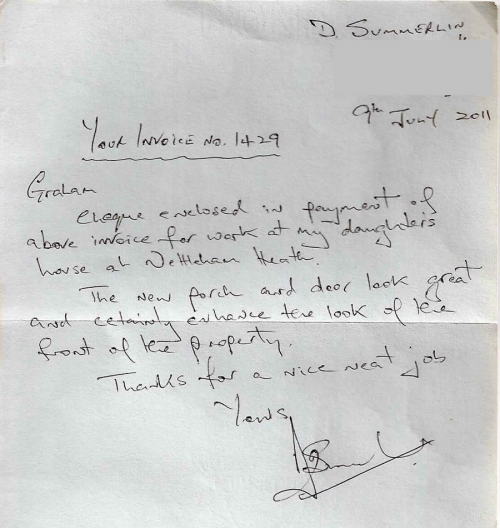 D. SUMMERLIN.
9th JULY 2011
YOUR INVOICE NO. 1429
Graham
Cheque enclosed in payment of
above invoice for work at my daughters
house at Nettleham Heath.
The new porch and door look great
and certainly enhance the look of the
front of the property.
Thanks for a nice neat job
Yours